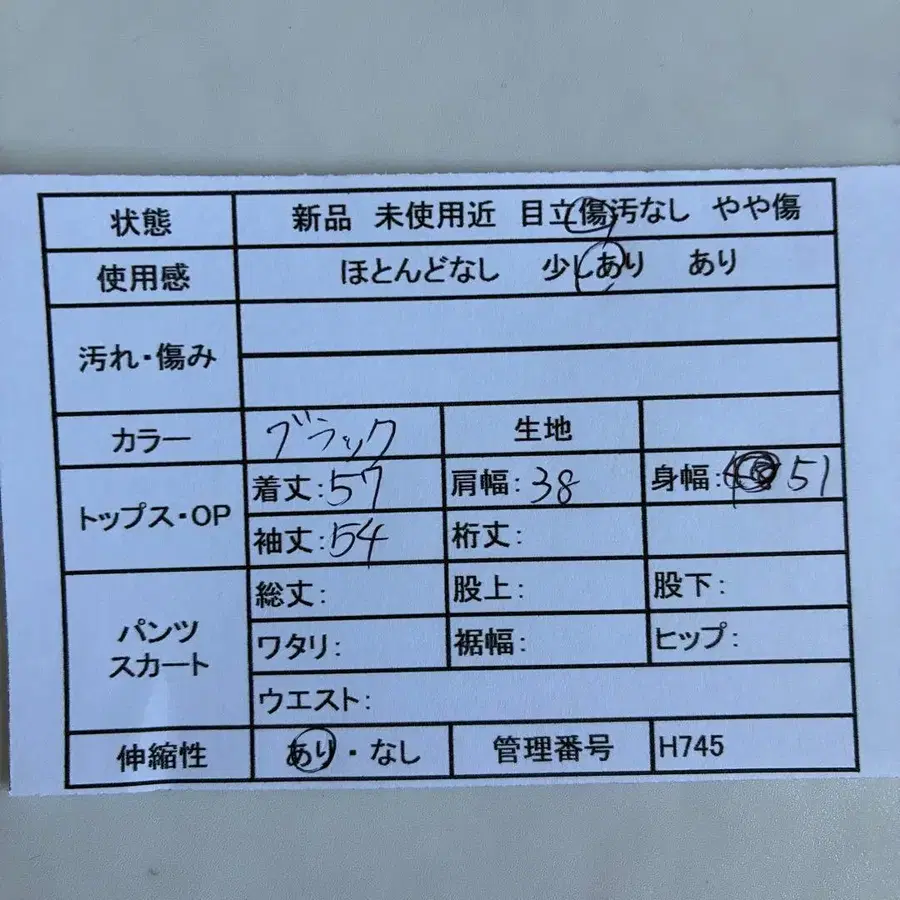 状態 新品 未使用近 目立傷汚なし やや傷
使用感 ほとんどなし 少しあり あり
汚れ・傷み
カラー ブラック 生地
トップス・OP 着丈:57 肩幅:38 身幅: 51
袖丈:54 裄丈:
パンツ
スカート
総丈: 股上: 股下:
ワタリ: 裾幅: ヒップ:
ウエスト:
伸縮性 あり・なし 管理番号 H745